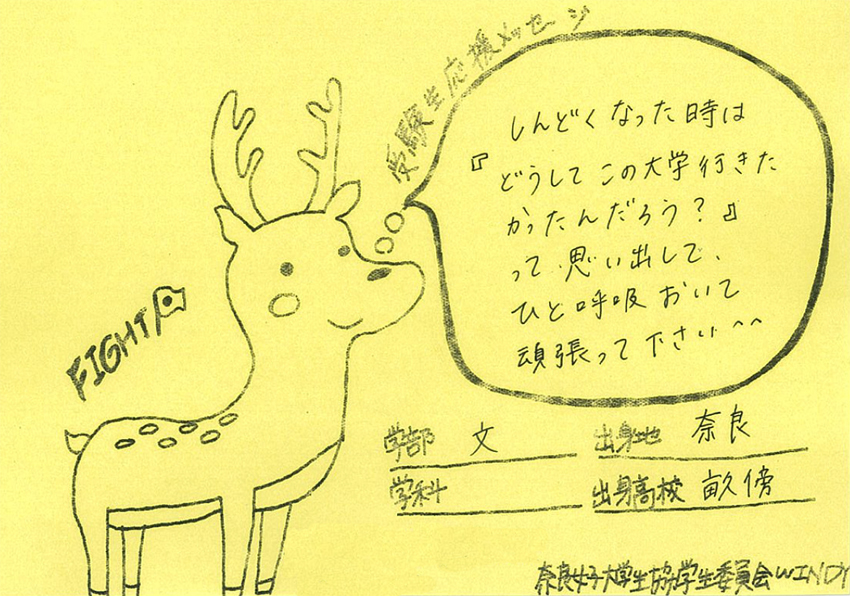 受験生応援メッセージ
しんどくなった時は
『どうしてこの大学行きた
かったんだろう?』
って思い出して、
ひと呼吸おいて
頑張って下さい^^
FIGHT
学部 文
出身地 奈良
学科
出身高校 畝傍
奈良女子大学生協学生委員会WINDY